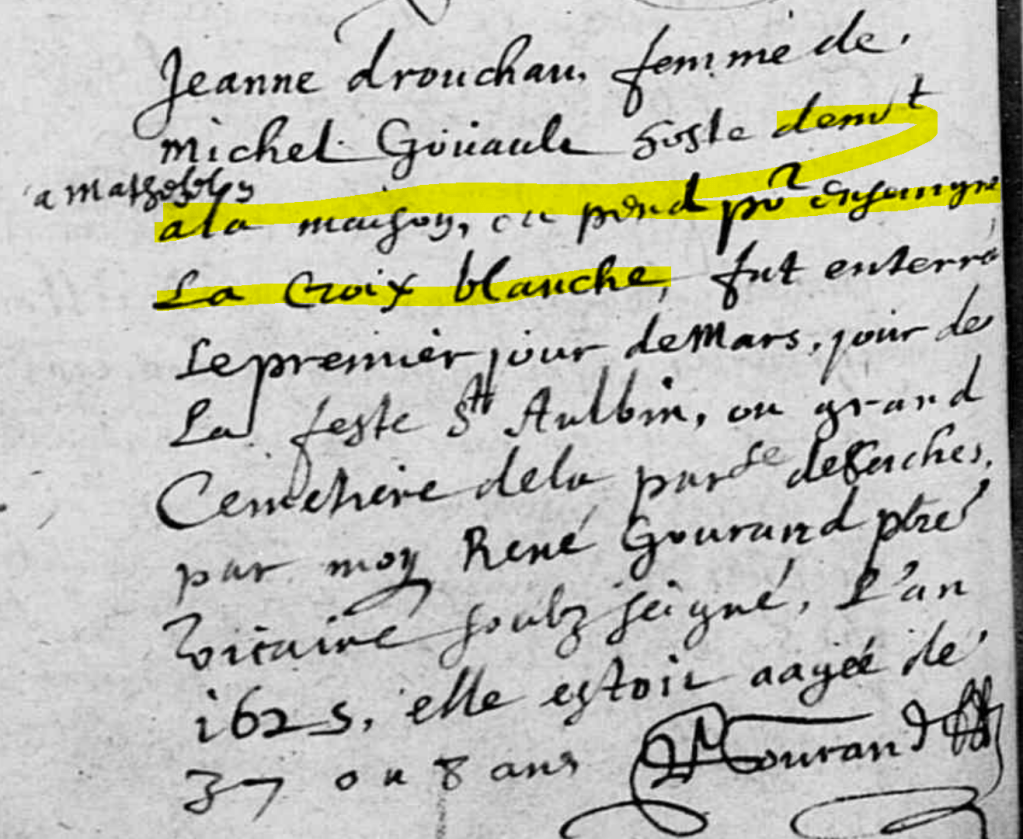 Jeanne drouchau, femme de
Michel Gouault hoste demt
a Matheflon
a la maison, ou pend pr enseingne
La Croix blanche, fut enterré
Le premier jour de Mars, jour de
La feste St Aulbin, ou grand
Cemetiere dela parse de Seiches,
par moy René Gourand pbre
vicaire soubz seigné, L'an
1625, elle estoit aagée de
37 ou 8 ans R Gourand